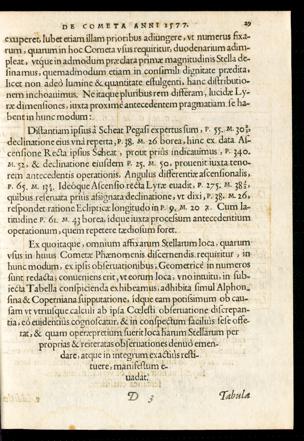 DE COMETA ANNI 1577. 29
exuperet. Iubet etiam illam prioribus adiungere, vt numerus fixa-
rum, quarum in hoc Cometa vsus requiritur, duodenarium adim-
pleat, vtque in admodum præclara primæ magnitudinis Stella de-
sinamus, quemadmodum etiam in consimili dignitate prædita,
licet non adeò lumine & quantitate effulgenti, hanc distributio-
nem inchoauimus. Ne itaque pluribus rem differam, lucidæ Ly-
ræ dimensiones, iuxta proximè antecedentem pragmatiam se ha-
bent in hunc modum:
Distantiam ipsius à Scheat Pegasi expertus sum, P. 55. M. 30
declinatione eius vnà reperta, P. 38. M. 26 borea, hinc ex data As-
censione Recta ipsius Scheat, prout priùs indicauimus, P. 340.
M. 52. & declinatione eiusdem P. 25 M. 50, prouenit iuxta teno-
rem antecedentis operationis. Angulus differentiæ ascensionalis,
P. 65. M. 13, Ideóque Ascensio recta Lyræ euadit, P. 275. M. 38
quibus reseruata priùs assignata declinatione, vt dixi, P. 38. M. 26,
respondet ratione Eclipticæ longitudo in P. 9, M. 20 Cum la-
titudine P. 61. M. 43 borea, idque iuxta processum antecedentium
operationum, quem repetere tædiosum foret.
Ex quo itaque, omnium affixarum Stellarum loca, quarum
vsus in huius Cometæ Phænomenis discernendis requiritur, in
hunc modum, ex ipsis obseruationibus, Geometricè in numeros
sunt redacta; conueniens erit, vt eorum loca, vno intuitu, in sub-
iecta Tabella conspicienda exhibeamus, adhibita simul Alphon-
sina & Coperniana supputatione, idque eam potissimum ob cau-
sam vt vtriusque calculi ab ipsa Cœlesti obseruatione discrepan-
tia, eò euidentiùs cognoscatur, & in conspectum faciliùs sese offe-
rat, & quàm operæpretium fuerit loca harum Stellarum per
proprias & reiteratas obseruationes denuò emen-
dare, atque in integrum exactiùs resti-
tuere, manifestum e-
uadat.
D 3 Tabula